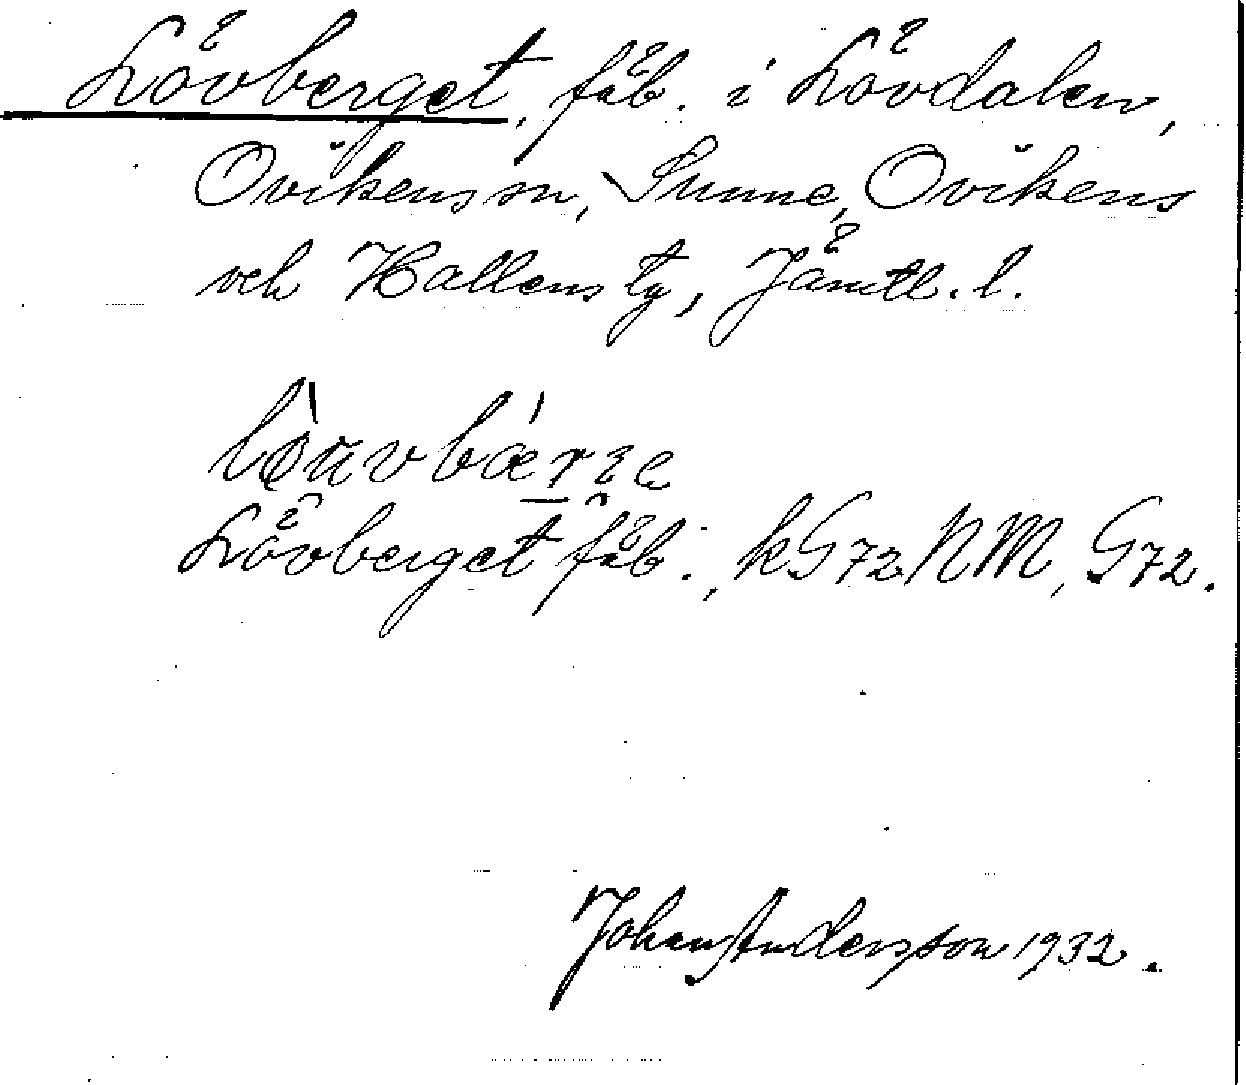 Lövberget, fäb. i Lövdalen,
Ovikens sn, Sunne, Ovikens
och Hallens tg, Jämtl. l.
Lövberget fäb., kG72NM, G72.
Johan Andersson 1932.